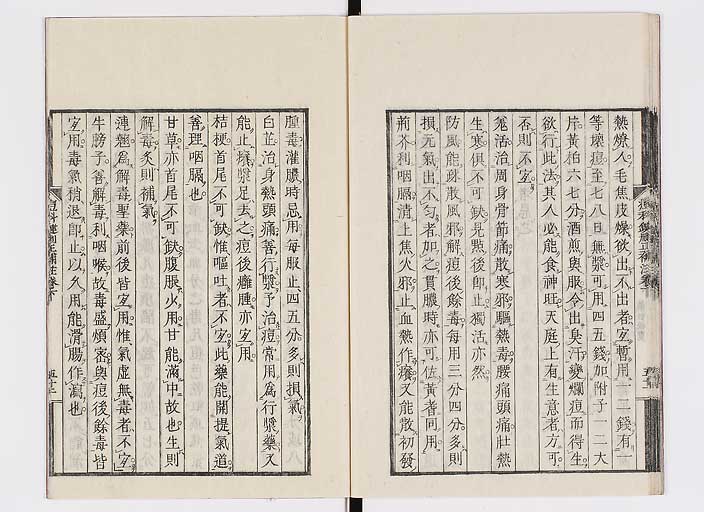 熱燎人毛焦皮燥欲出不出者宜暫用一二錢有一
等壞痘至七八日無漿可用四五錢如附子一二大
片黃柏六七分酒煎與服令出臭汗變爛痘而得生
欲行此法其人必能食神旺天庭上有生意者方可
否則不宜
羗活治周身骨節痛散寒邪驅熱毒腰痛頭痛壯熱
生寒俱不可缺見點後即止獨活亦然
防風能疎散風邪解痘後餘毒每用三分四分多則
損元氣出不勻者如之貫膿時亦可佐黃耆同用
荊芥利咽膈清上焦火邪止血熱作癢又能散初發
腫毒灌膿時忌用每服止四五分多則損氣
白芷治身熱頭痛善行漿予治痘常用爲行漿藥又
能止癢漿足去之痘後癰腫亦宜用
桔梗首尾不可缺惟嘔吐者不宜此藥能開提氣道
善理咽膈也
甘草亦首尾不可缺腹脹少用甘能滿中故也生則
解毒炙則補氣
連翹爲解毒聖藥前後皆宜用惟氣虛無毒者不宜
牛膀子善解毒利咽喉故毒盛煩密與痘後餘毒皆
宜用毒氣稍退即止以久用能滑腸作瀉也